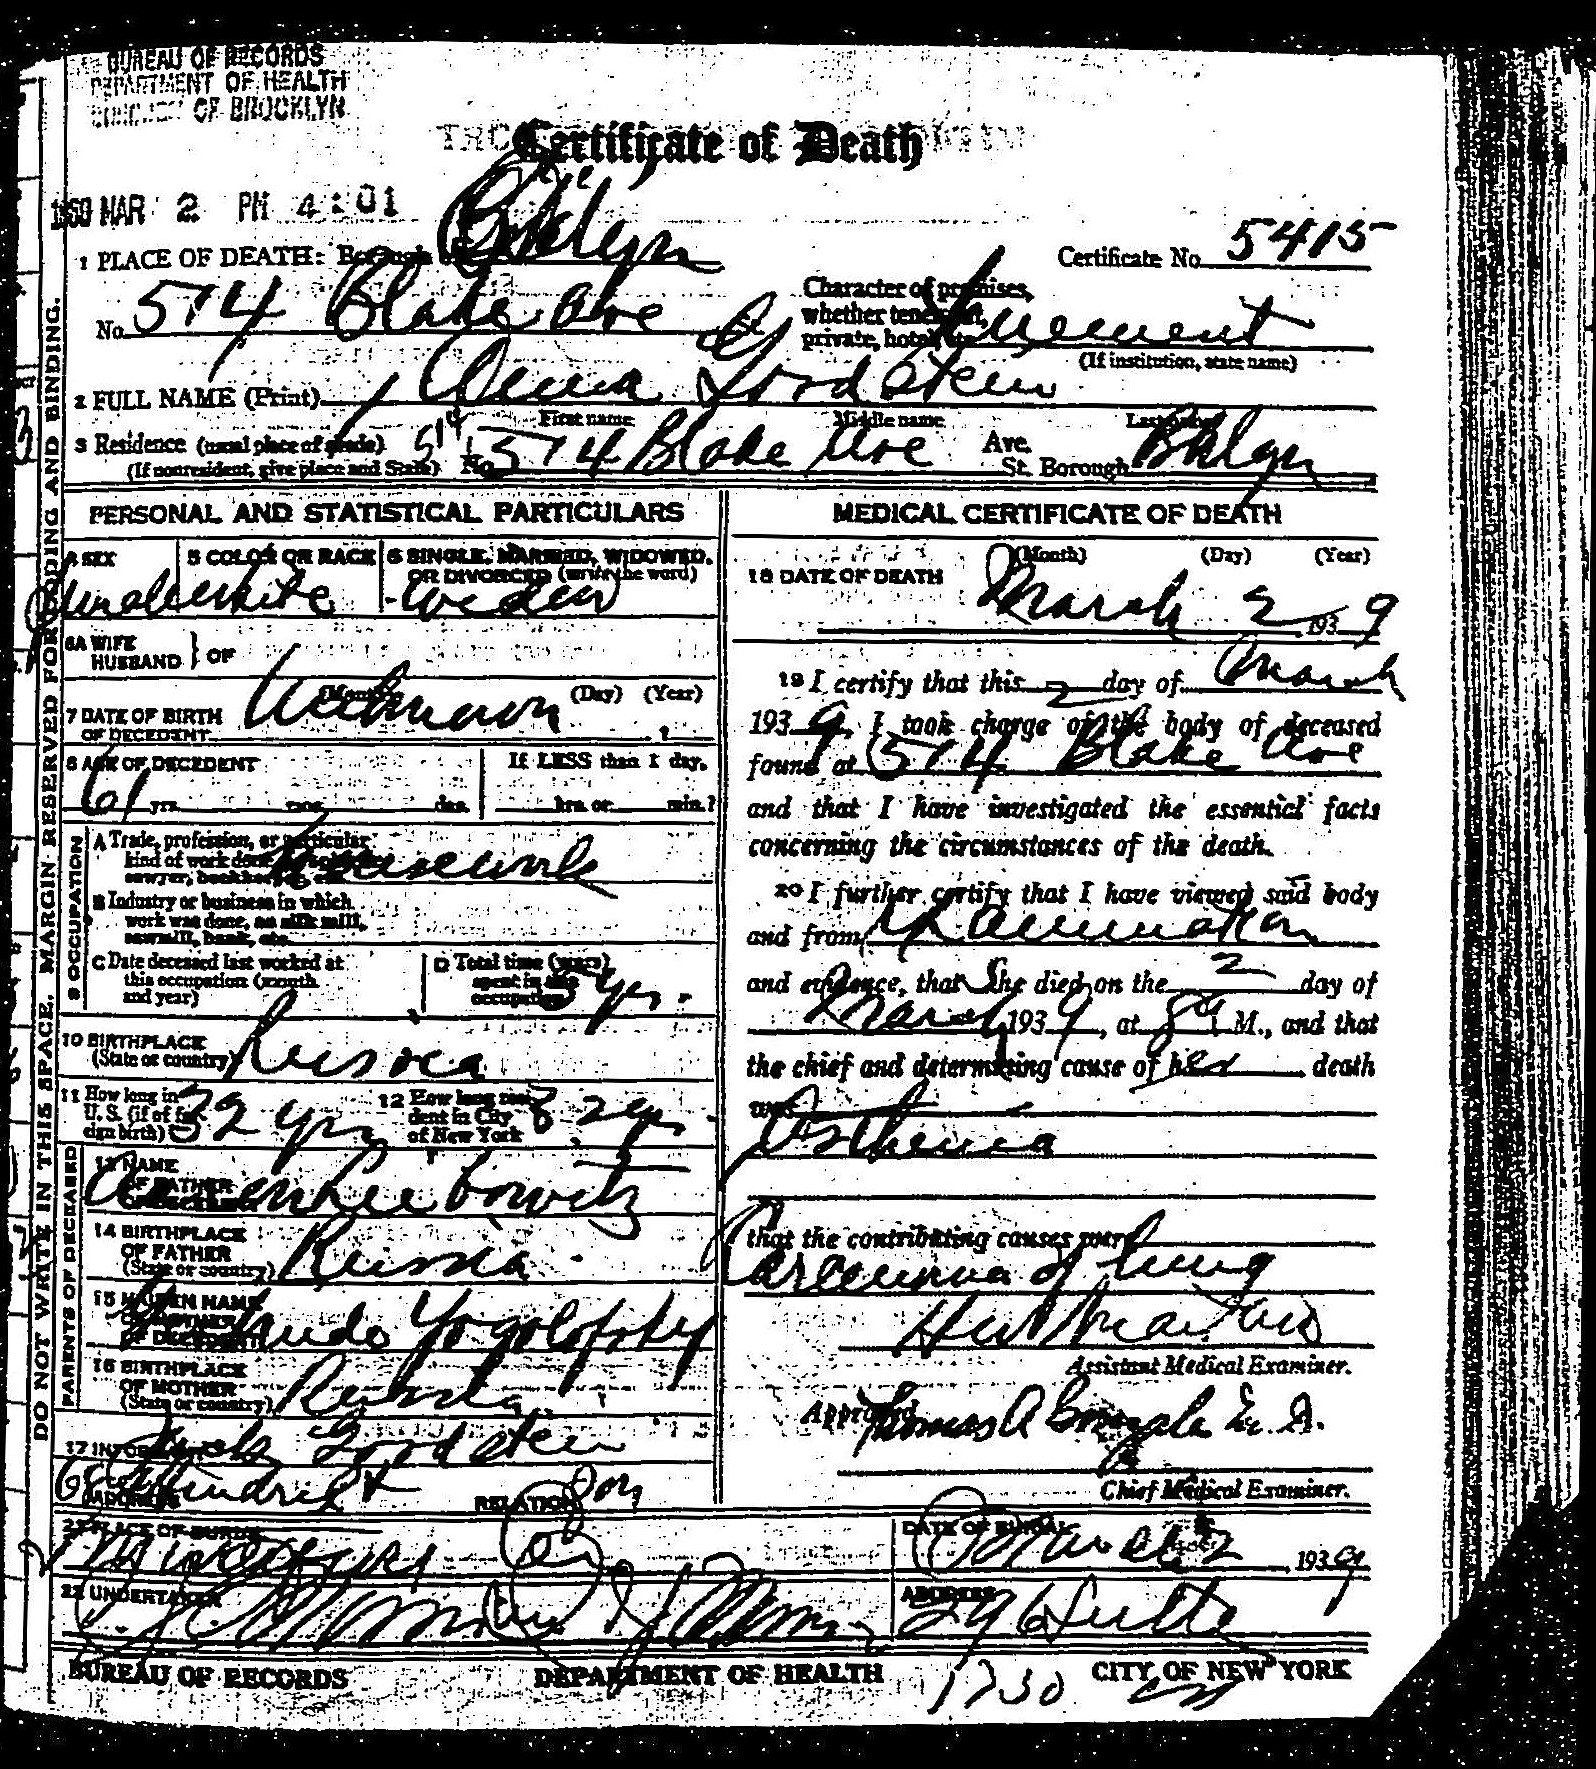 BUREAU OF RECORDS
DEPARTMENT OF HEALTH
OF BROOKLYN
Certificate of Death
MAR 2 PM 4:01
1 PLACE OF DEATH: Borough of Bklyn
Certificate No. 5415
No. 514 Blake Ave
Character of premises, whether tenement, private, hotel, etc. Tenement
(If institution, state name)
2 FULL NAME (Print) Anna Goodstein
First name Middle name Last name
3 Residence (usual place of abode) No. 514 Blake Ave Ave. St. Borough Bklyn
(If nonresident, give place and State)
PERSONAL AND STATISTICAL PARTICULARS
4 SEX female
5 COLOR OR RACE white
6 SINGLE, MARRIED, WIDOWED, OR DIVORCED (write the word) widow
6A WIFE HUSBAND } OF
7 DATE OF BIRTH OF DECEDENT (Month) (Day) (Year) Unknown
8 AGE OF DECEDENT 61 yrs. mos. ds.
If LESS than 1 day, hrs. or min.?
9 OCCUPATION
A Trade, profession, or particular kind of work done, housework
B Industry or business in which work was done, as silk mill, sawmill, bank, etc.
C Date deceased last worked at this occupation (month and year)
D Total time (years) spent in this occupation 5 yrs.
10 BIRTHPLACE (State or country) Russia
11 How long in U. S. (if of foreign birth) 32 yrs
12 How long resident in City of New York 32 yrs.
PARENTS OF DECEASED
13 NAME OF FATHER OF DECEDENT Leibowitz
14 BIRTHPLACE OF FATHER (State or country) Russia
15 MAIDEN NAME OF MOTHER OF DECEDENT
16 BIRTHPLACE OF MOTHER (State or country) Russia
17 INFORMANT Goodstein
ADDRESS RELATION Son
MEDICAL CERTIFICATE OF DEATH
18 DATE OF DEATH (Month) (Day) (Year) March 2 1939
19 I certify that this 2 day of March
1939, I took charge of the body of deceased
found at 514 Blake Ave
and that I have investigated the essential facts
concerning the circumstances of the death.
20 I further certify that I have viewed said body
and from Examination
and evidence, that She died on the 2 day of
March 1939, at 8 A M., and that
the chief and determining cause of her death
was
Asthma
that the contributing causes were
Carcinoma of lung
Assistant Medical Examiner.
Approved Thomas A
Chief Medical Examiner.
21 PLACE OF BURIAL
DATE OF BURIAL March 2 1939
22 UNDERTAKER
ADDRESS
BUREAU OF RECORDS DEPARTMENT OF HEALTH CITY OF NEW YORK
1730
DO NOT WRITE IN THIS SPACE. MARGIN RESERVED FOR CODING AND BINDING.